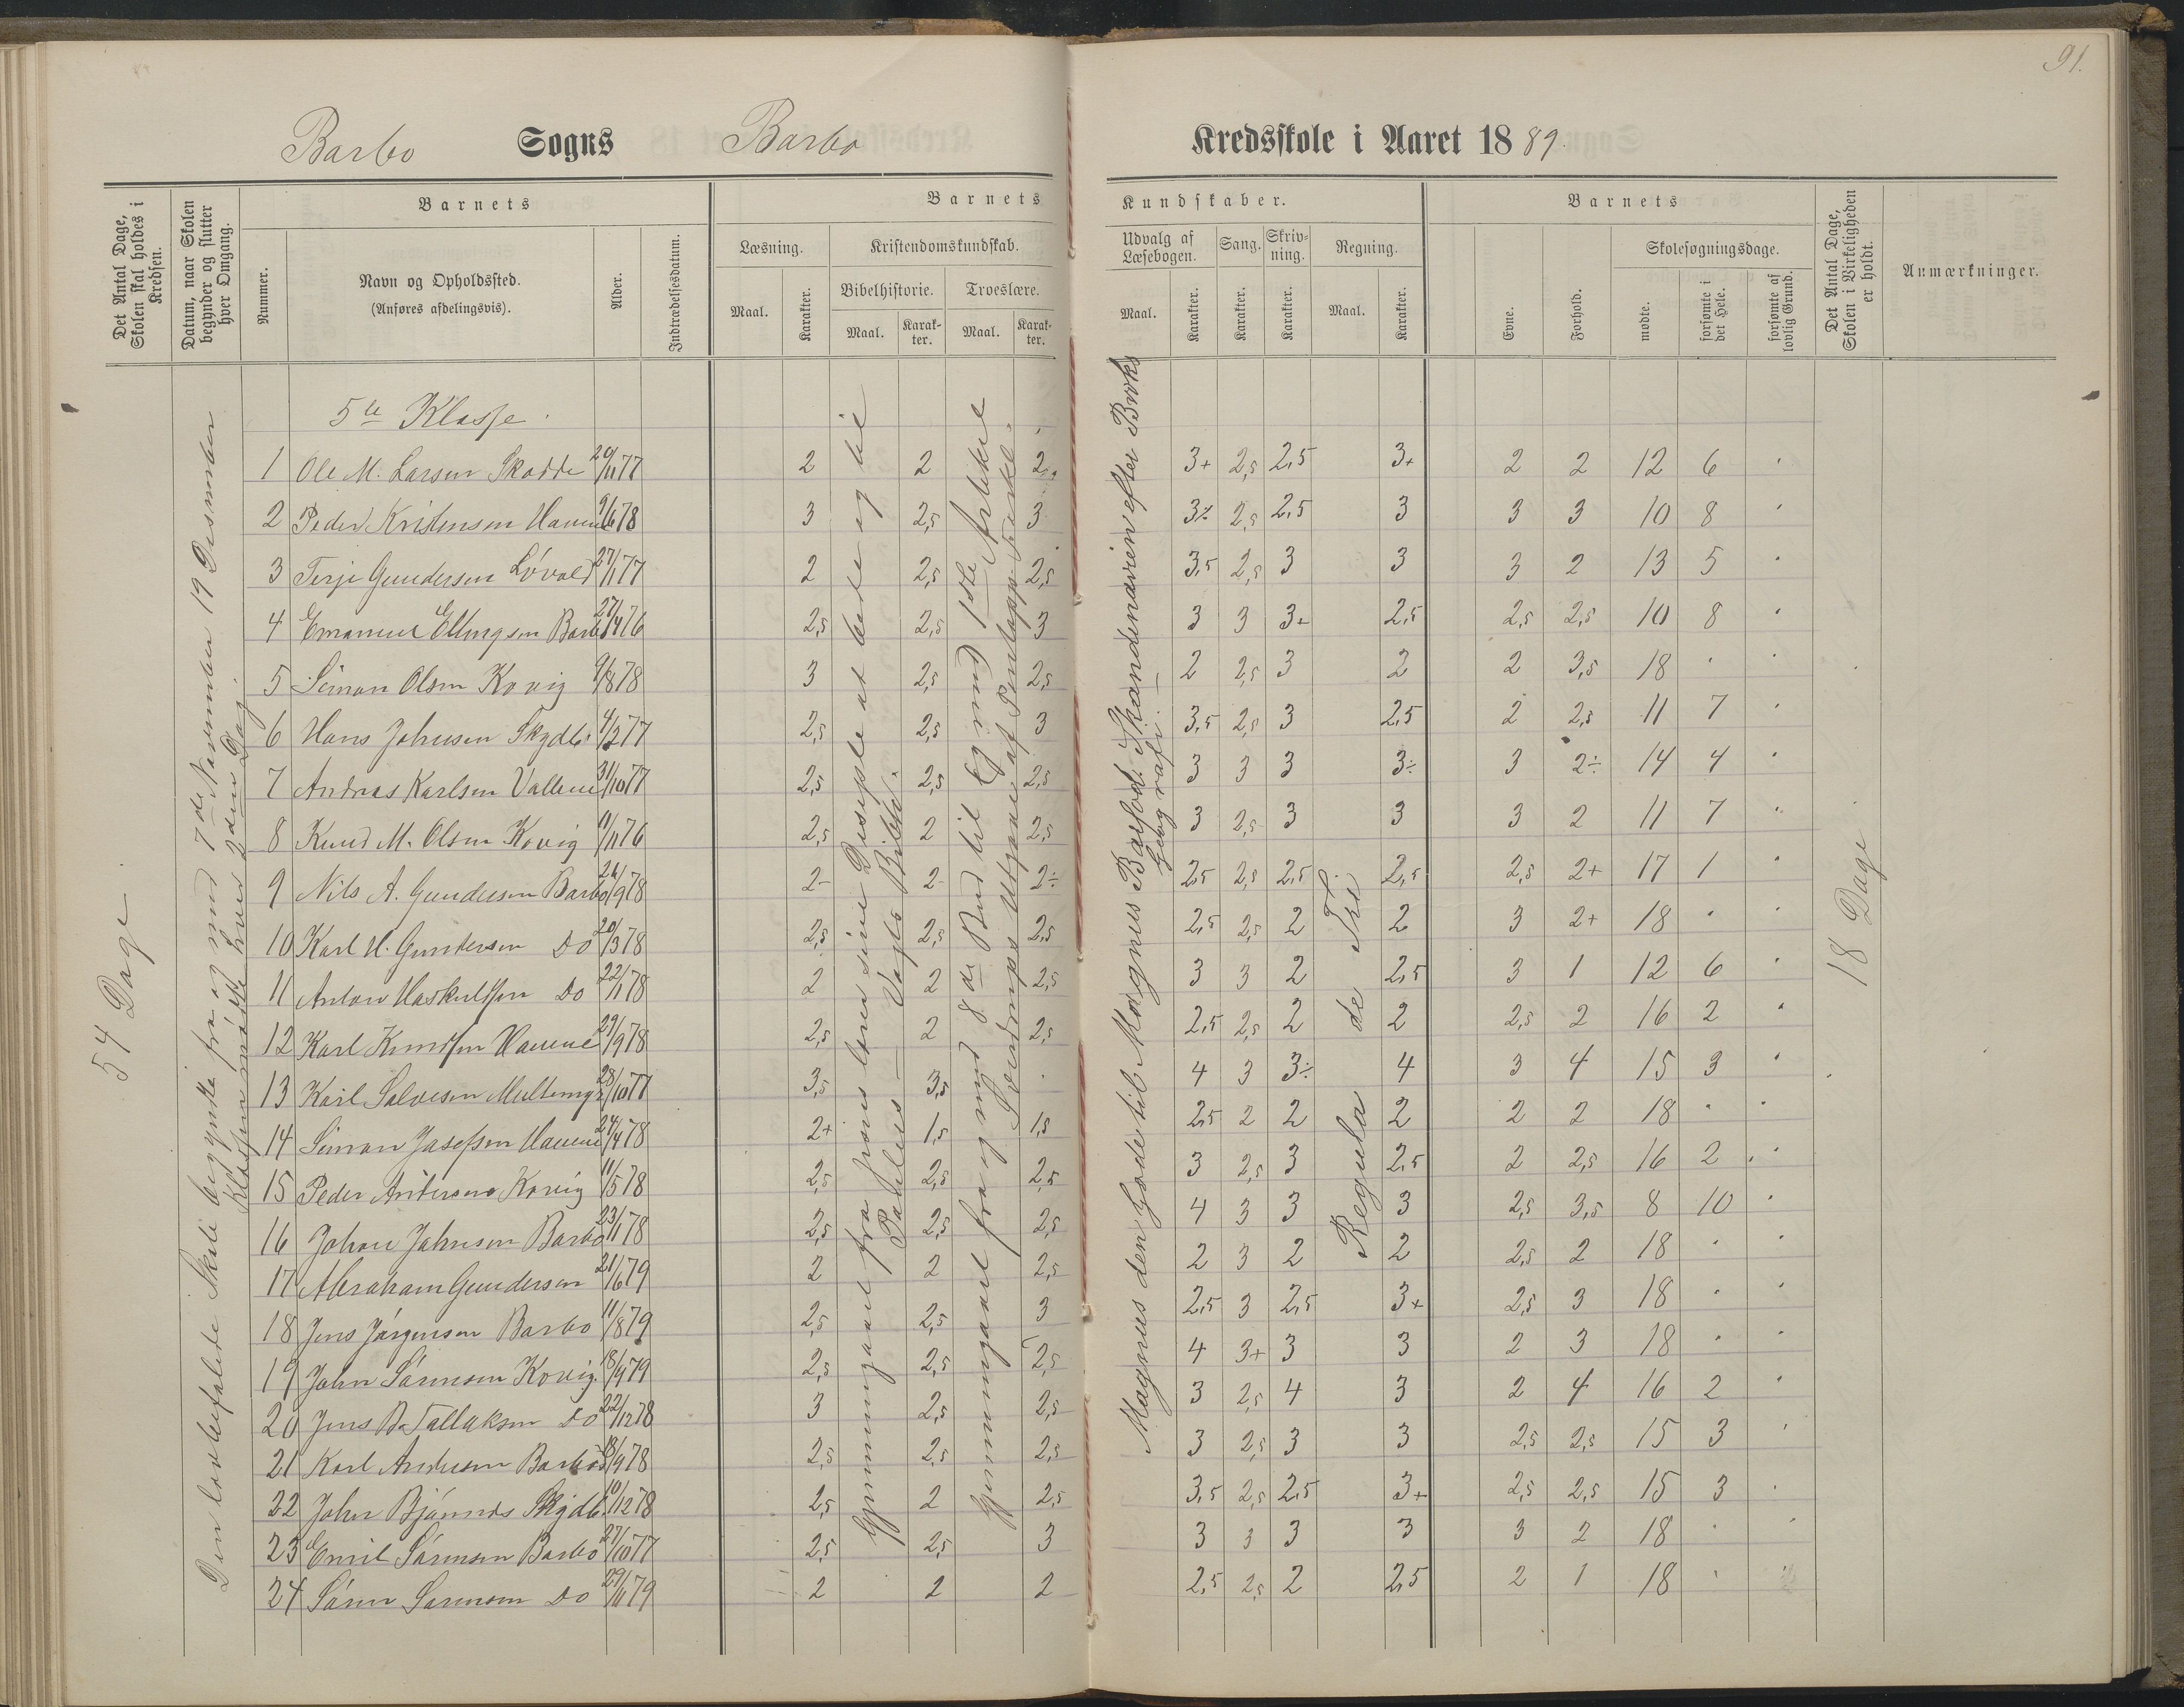 91.
Barbo Sogns Barbo Kredsskole i Aaret 1889.
Det Antal Dage, Skolen skal holdes i Kredsen.
Datum, naar Skolen begynder og slutter hver Omgang.
Barnets
Nummer.
Navn og Opholdssted.
(Anføres afdelingsvis).
Alder.
Indtrædelsesdatum.
Barnets Kundskaber.
Læsning.
Maal.
Karakter.
Kristendomskundskab.
Bibelhistorie.
Maal.
Karakter.
Troeslære.
Maal.
Karakter.
Udvalg af Læsebogen.
Maal.
Karakter.
Sang.
Karakter.
Skrivning.
Karakter.
Regning.
Maal.
Karakter.
Barnets
Evne.
Forhold.
Skolesøgningsdage.
mødte.
forsømte i det Hele.
forsømte af lovlig Grund.
Det Antal Dage, Skolen i Virkeligheden er holdt.
Anmærkninger.
54 Dage
Den lovbefalede Skole begyndte fra og med 7de November 19 Desember
Klassen mødte hver 2den Dag.
Gjennemgaaet fra Jesus lærer sine Disciple at bede og til
Paulus — Vogts Bibelh.
Gjennemgaaet fra og med 8de Bud til og med 1ste Artikel
Sverdrups Utgave af Pontopp. Forkl.
Magnus den Gode til Magnus Barfod. Skandinavien efter Broks
Geografi. —
Regula de Tri.
18 Dage
5te Klasse.
1 Ole M. Larsen Skodde 29/11 77 2 2 2,5 3+ 2,5 2,5 3+ 2 2 12 6
2 Peder Kristensen Havene 9/6 78 3 2,5 3 3% 2,5 2,5 3 3 3 10 8
3 Terje Gundersen Løvold 27/11 77 2 2,5 2,5 3,5 2,5 3 3 3 2 13 5
4 Emanuel Ellingsen Barbo 27/4 76 2,5 2,5 3 3 3 3+ 2,5 2,5 2,5 10 8
5 Simon Olsen Kovig 9/8 78 3 2,5 2,5 2 2,5 3 2 2 3,5 18
6 Hans Johnsen Skydb. 4/2 77 2,5 2,5 3 3,5 2,5 3 2,5 2 2,5 11 7
7 Andreas Karlsen Vallene 31/10 77 2,5 2,5 2,5 3 3 3 3÷ 3 2÷ 14 4
8 Knud M. Olsen Kovig 11/11 76 2,5 2 2,5 3 2,5 3 3 3 2 11 7
9 Nils A. Gundersen Barbo 24/9 78 2- 2- 2÷ 2,5 2,5 2,5 2,5 2,5 2+ 17 1
10 Karl H. Gundersen Do 20/3 78 2,5 2,5 2,5 2,5 2,5 2 2 3 2+ 18
11 Anton Haskuldsen Do 22/1 78 2 2 2,5 3 3 2 2,5 3 1 12 6
12 Karl Knudsen Havene 29/9 78 2,5 2 2,5 2,5 2,5 2 2 2,5 2 16 2
13 Karl Salvesen 28/10 77 3,5 3,5 4 3 3÷ 4 3 4 15 3
14 Simon Josefsen Havene 24/4 78 2+ 1,5 1,5 2,5 2 2 2 2 2 18
15 Peder Andersen Kovig 11/5 78 2,5 2,5 2,5 3 2,5 3 2,5 2 2,5 16 2
16 Johan Johnsen Barbo 23/1 78 2,5 2,5 2,5 4 3 3 3 2,5 3,5 8 10
17 Abraham Gundersen 21/6 79 2 2 2,5 2 3 2 2 2,5 2 18
18 Jens Jørgensen Barbo 11/8 79 2,5 2,5 3 2,5 3 2,5 3+ 2,5 3 18
19 John Sørensen Kovig. 18/9 79 2,5 2,5 2,5 4 3+ 3 3 2 3 18
20 Jens B. Tallaksen Do 22/12 78 3 2,5 2,5 3 2,5 4 3 2 4 16 2
21 Karl Andersen Barbo 18/9 78 2,5 2,5 2,5 3 2,5 3 3 2,5 2,5 15 3
22 John Bjønnes Skydb. 10/12 78 2,5 2 2,5 3,5 2,5 2,5 3+ 2,5 2,5 15 3
23 Emil Sørensen Barbo 27/10 77 2,5 2,5 3 3 3 3 3 3 2 18
24 Søren Sørensen Do 29/11 79 2 2 2 2,5 2,5 2 2,5 2 1 18